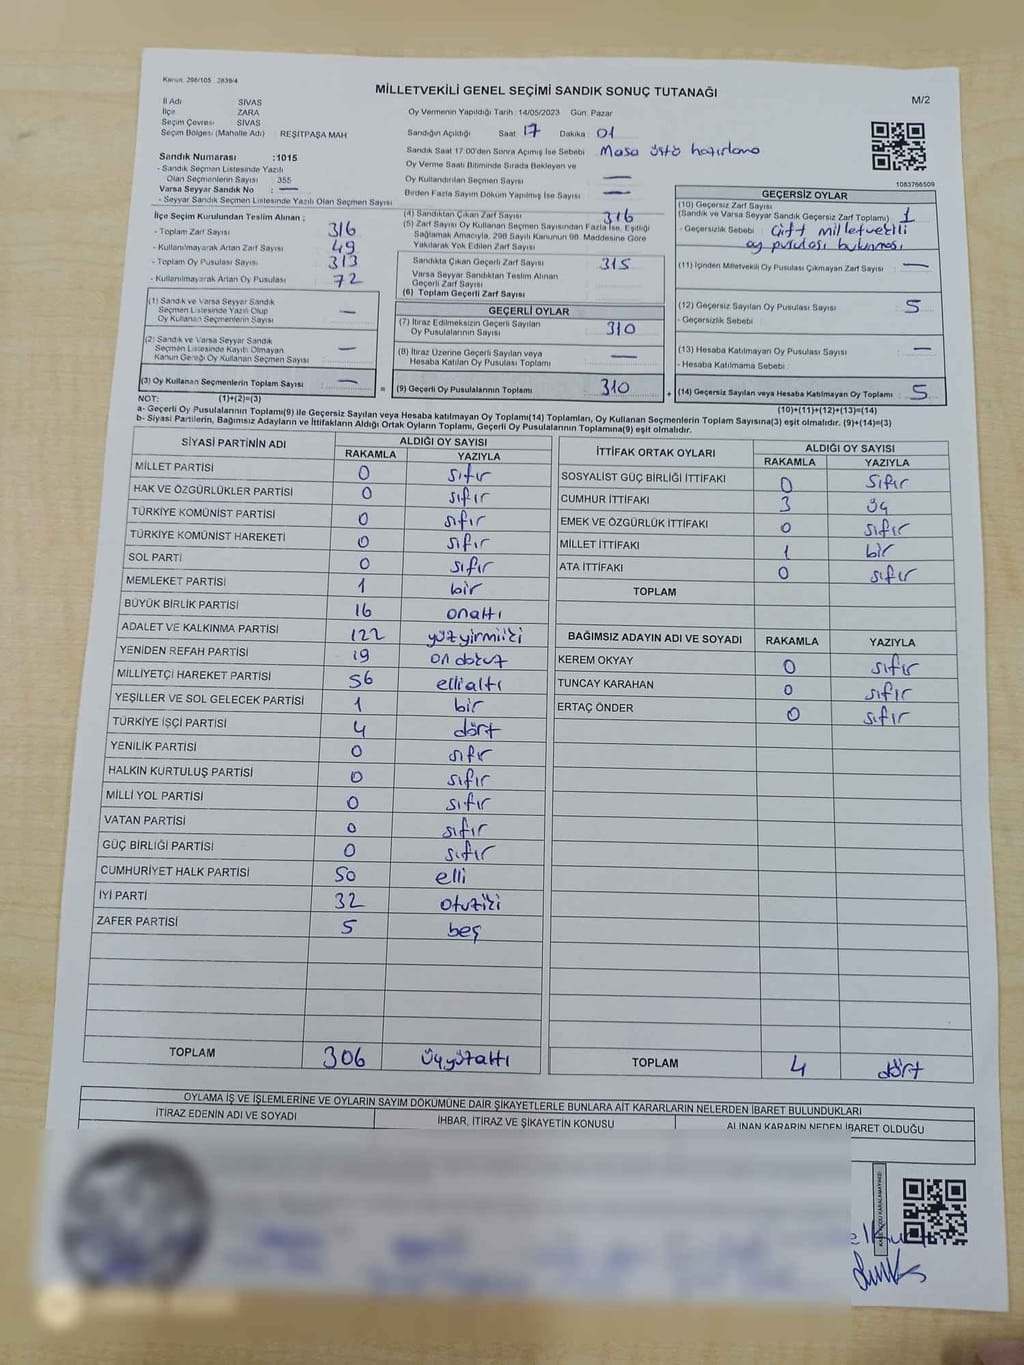 Kanun: 298/105 2839/4
MİLLETVEKİLİ GENEL SEÇİMİ SANDIK SONUÇ TUTANAĞI
M/2
İl Adı SİVAS
İlçe ZARA
Seçim Çevresi SİVAS
Seçim Bölgesi (Mahalle Adı) REŞİTPAŞA MAH
Oy Vermenin Yapıldığı Tarih : 14/05/2023 Gün: Pazar
Sandığın Açıldığı Saat 17 Dakika 01
Sandık Saat 17:00'den Sonra Açımış İse Sebebi Masa üstü hazırlama
Oy Verme Saati Bitiminde Sırada Bekleyen ve
Oy Kullandırılan Seçmen Sayısı —
Birden Fazla Sayım Döküm Yapılmış İse Sayısı —
1083766509
Sandık Numarası :1015
- Sandık Seçmen Listesinde Yazılı
Olan Seçmenlerin Sayısı 355
Varsa Seyyar Sandık No : —
- Seyyar Sandık Seçmen Listesinde Yazılı Olan Seçmen Sayısı
İlçe Seçim Kurulundan Teslim Alınan ;
- Toplam Zarf Sayısı 316
- Kullanılmayarak Artan Zarf Sayısı 49
- Toplam Oy Pusulası Sayısı 313
- Kullanılmayarak Artan Oy Pusulası 72
(1) Sandık ve Varsa Seyyar Sandık
Seçmen Listesinde Yazılı Olup
Oy Kullanan Seçmenlerin Sayısı —
(2) Sandık ve Varsa Seyyar Sandık
Seçmen Listesinde Kayıtlı Olmayan
Kanun Gereği Oy Kullanan Seçmen Sayısı —
(3) Oy Kullanan Seçmenlerin Toplam Sayısı —
(4) Sandıktan Çıkan Zarf Sayısı 316
(5) Zarf Sayısı Oy Kullanan Seçmen Sayısından Fazla İse, Eşitliği
Sağlamak Amacıyla, 298 Sayılı Kanunun 98. Maddesine Göre
Yakılarak Yok Edilen Zarf Sayısı
Sandıkta Çıkan Geçerli Zarf Sayısı 315
Varsa Seyyar Sandıktan Teslim Alınan
Geçerli Zarf Sayısı
(6) Toplam Geçerli Zarf Sayısı
GEÇERLİ OYLAR
(7) İtiraz Edilmeksizin Geçerli Sayılan
Oy Pusulalarının Sayısı 310
(8) İtiraz Üzerine Geçerli Sayılan veya
Hesaba Katılan Oy Pusulası Toplamı —
= (9) Geçerli Oy Pusulalarının Toplamı 310
GEÇERSİZ OYLAR
(10) Geçersiz Zarf Sayısı
(Sandık ve Varsa Seyyar Sandık Geçersiz Zarf Toplamı) 1
- Geçersizlik Sebebi Çift milletvekili
oy pusulası bulunması
(11) İçinden Milletvekili Oy Pusulası Çıkmayan Zarf Sayısı —
(12) Geçersiz Sayılan Oy Pusulası Sayısı 5
- Geçersizlik Sebebi :
(13) Hesaba Katılmayan Oy Pusulası Sayısı —
- Hesaba Katılmama Sebebi :
+ (14) Geçersiz Sayılan veya Hesaba Katılmayan Oy Toplamı : 5
(10)+(11)+(12)+(13)=(14)
NOT: (1)+(2)=(3)
a- Geçerli Oy Pusulalarının Toplamı(9) ile Geçersiz Sayılan veya Hesaba katılmayan Oy Toplamı(14) Toplamları, Oy Kullanan Seçmenlerin Toplam Sayısına(3) eşit olmalıdır. (9)+(14)=(3)
b- Siyasi Partilerin, Bağımsız Adayların ve İttifakların Aldığı Ortak Oyların Toplamı, Geçerli Oy Pusulalarının Toplamına(9) eşit olmalıdır.
SİYASİ PARTİNİN ADI ALDIĞI OY SAYISI
RAKAMLA YAZIYLA
MİLLET PARTİSİ 0 sıfır
HAK VE ÖZGÜRLÜKLER PARTİSİ 0 sıfır
TÜRKİYE KOMÜNİST PARTİSİ 0 sıfır
TÜRKİYE KOMÜNİST HAREKETİ 0 sıfır
SOL PARTİ 0 sıfır
MEMLEKET PARTİSİ 1 bir
BÜYÜK BİRLİK PARTİSİ 16 onaltı
ADALET VE KALKINMA PARTİSİ 122 yüzyirmiiki
YENİDEN REFAH PARTİSİ 19 on dokuz
MİLLİYETÇİ HAREKET PARTİSİ 56 elli altı
YEŞİLLER VE SOL GELECEK PARTİSİ 1 bir
TÜRKİYE İŞÇİ PARTİSİ 4 dört
YENİLİK PARTİSİ 0 sıfır
HALKIN KURTULUŞ PARTİSİ 0 sıfır
MİLLİ YOL PARTİSİ 0 sıfır
VATAN PARTİSİ 0 sıfır
GÜÇ BİRLİĞİ PARTİSİ 0 sıfır
CUMHURİYET HALK PARTİSİ 50 elli
İYİ PARTİ 32 otuziki
ZAFER PARTİSİ 5 beş
TOPLAM 306 üçyüzaltı
İTTİFAK ORTAK OYLARI ALDIĞI OY SAYISI
RAKAMLA YAZIYLA
SOSYALİST GÜÇ BİRLİĞİ İTTİFAKI 0 sıfır
CUMHUR İTTİFAKI 3 üç
EMEK VE ÖZGÜRLÜK İTTİFAKI 0 sıfır
MİLLET İTTİFAKI 1 bir
ATA İTTİFAKI 0 sıfır
TOPLAM
BAĞIMSIZ ADAYIN ADI VE SOYADI RAKAMLA YAZIYLA
KEREM OKYAY 0 sıfır
TUNCAY KARAHAN 0 sıfır
ERTAÇ ÖNDER 0 sıfır
TOPLAM 4 dört
OYLAMA İŞ VE İŞLEMLERİNE VE OYLARIN SAYIM DÖKÜMÜNE DAİR ŞİKAYETLERLE BUNLARA AİT KARARLARIN NELERDEN İBARET BULUNDUKLARI
İTİRAZ EDENİN ADI VE SOYADI İHBAR, İTİRAZ VE ŞİKAYETİN KONUSU ALINAN KARARIN NEDEN İBARET OLDUĞU